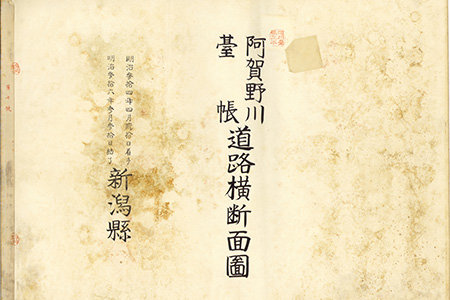 阿賀野川
臺帳
道路横断面圖
明治参拾四年四月貮拾日着手
明治参拾六年参月参拾日結了
新潟縣